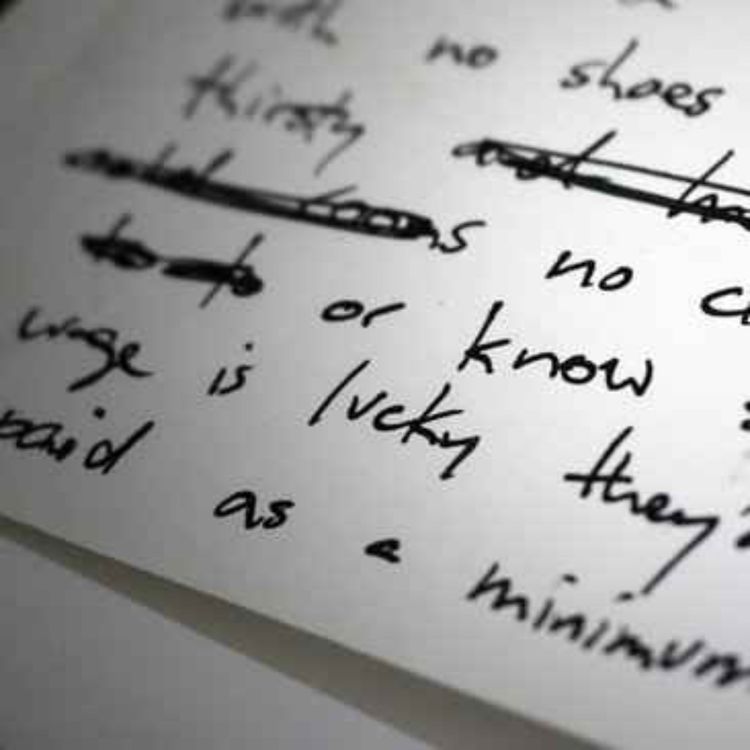 with no shoes
thirsty
no
or know
wage is lucky they'
paid as a minimum